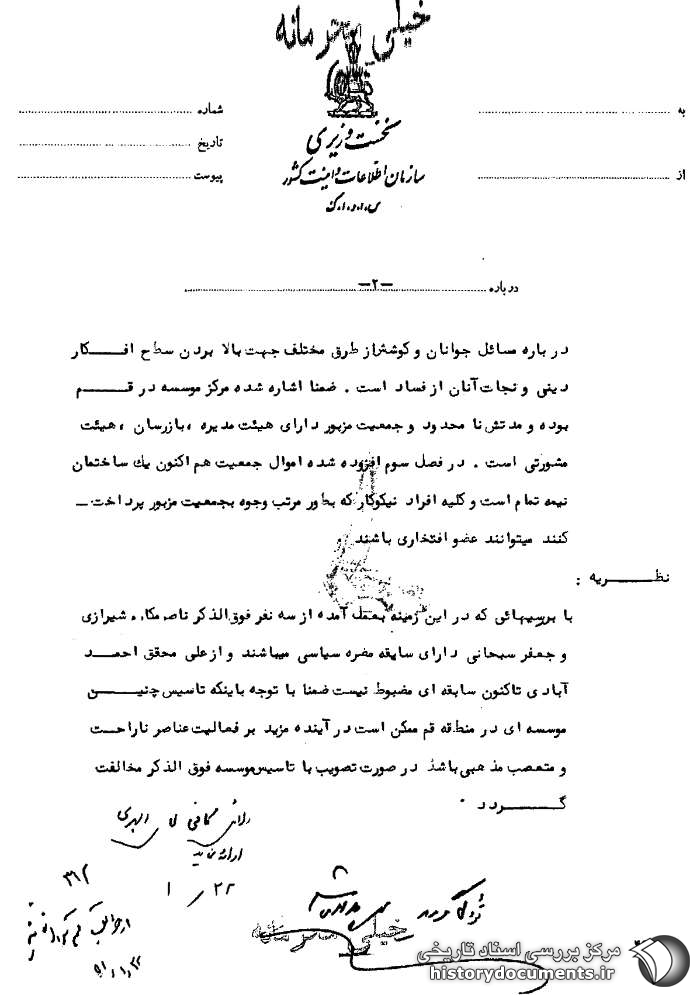 خیلی محرمانه
نخست وزیری
سازمان اطلاعات و امنیت کشور
س.ا.و.ا.ک
به
از
شماره
تاریخ
پیوست
درباره -۲-
درباره مسائل جوانان و کوشش از طرق مختلف جهت بالا بردن سطح افکار
دینی و نجات آنان از فساد است . ضمنا اشاره شده مرکز موسسه در قم
بوده و مدتش نا محدود و جمعیت مزبور دارای هیئت مدیره ، بازرسان ، هیئت
مشورتی است . در فصل سوم افزوده شده اموال جمعیت هم اکنون یك ساختمان
نیمه تمام است و کلیه افراد نیکوکار که بطور مرتب وجوه بجمعیت مزبور پرداخت -
کنند میتوانند عضو افتخاری باشند .
نظریه :
با بررسیهائی که در این زمینه بعمل آمده از سه نفر فوق الذکر ناصر مکارم شیرازی
و جعفر سبحانی دارای سابقه مضره سیاسی میباشند و از علی محقق احمد
آبادی تاکنون سابقه ای مضبوط نیست ضمنا با توجه باینکه تاسیس چنین
موسسه ای در منطقه قم ممکن است در آینده مزید بر فعالیت عناصر ناراحت
و متعصب مذهبی باشد در صورت تصویب با تاسیس موسسه فوق الذکر مخالفت
گردد .
ارائه
۲۲ / ۱
۳۱۲
خیلی محرمانه
مرکز بررسی اسناد تاریخی
historydocuments.ir